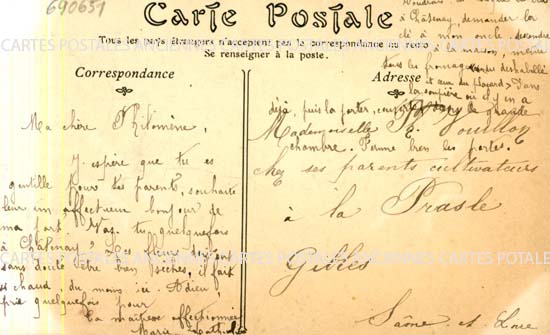 690651
Carte Postale
Tous les pays étrangers n'acceptent pas la correspondance au recto
Se renseigner à la poste.
Correspondance
Ma chère Philomène,
J'espère que tu es
gentille pour tes parents, souhaite
leur un affectueux bonjour de
ma part. Vas tu quelquefois
à Châtenay? Les fleurs doivent
sans doute être bien sèches, il fait
si chaud du moins ici. Adieu,
prie quelquefois pour
ta maîtresse affectionnée
Marie
Adresse
à Châtenay, demander la
clé à mon oncle, descendre
la maison,
sous les fromages
et aux du placard? Dans
la soupière où il y en a
déjà, puis la porter, dans la grande
chambre. Ferme bien les portes.
Mademoiselle P.
chez ses parents cultivateurs
à la Prasle
Gibles
Saône et Loire
CARTES POSTALES ANCIENNES CARTES POSTALES